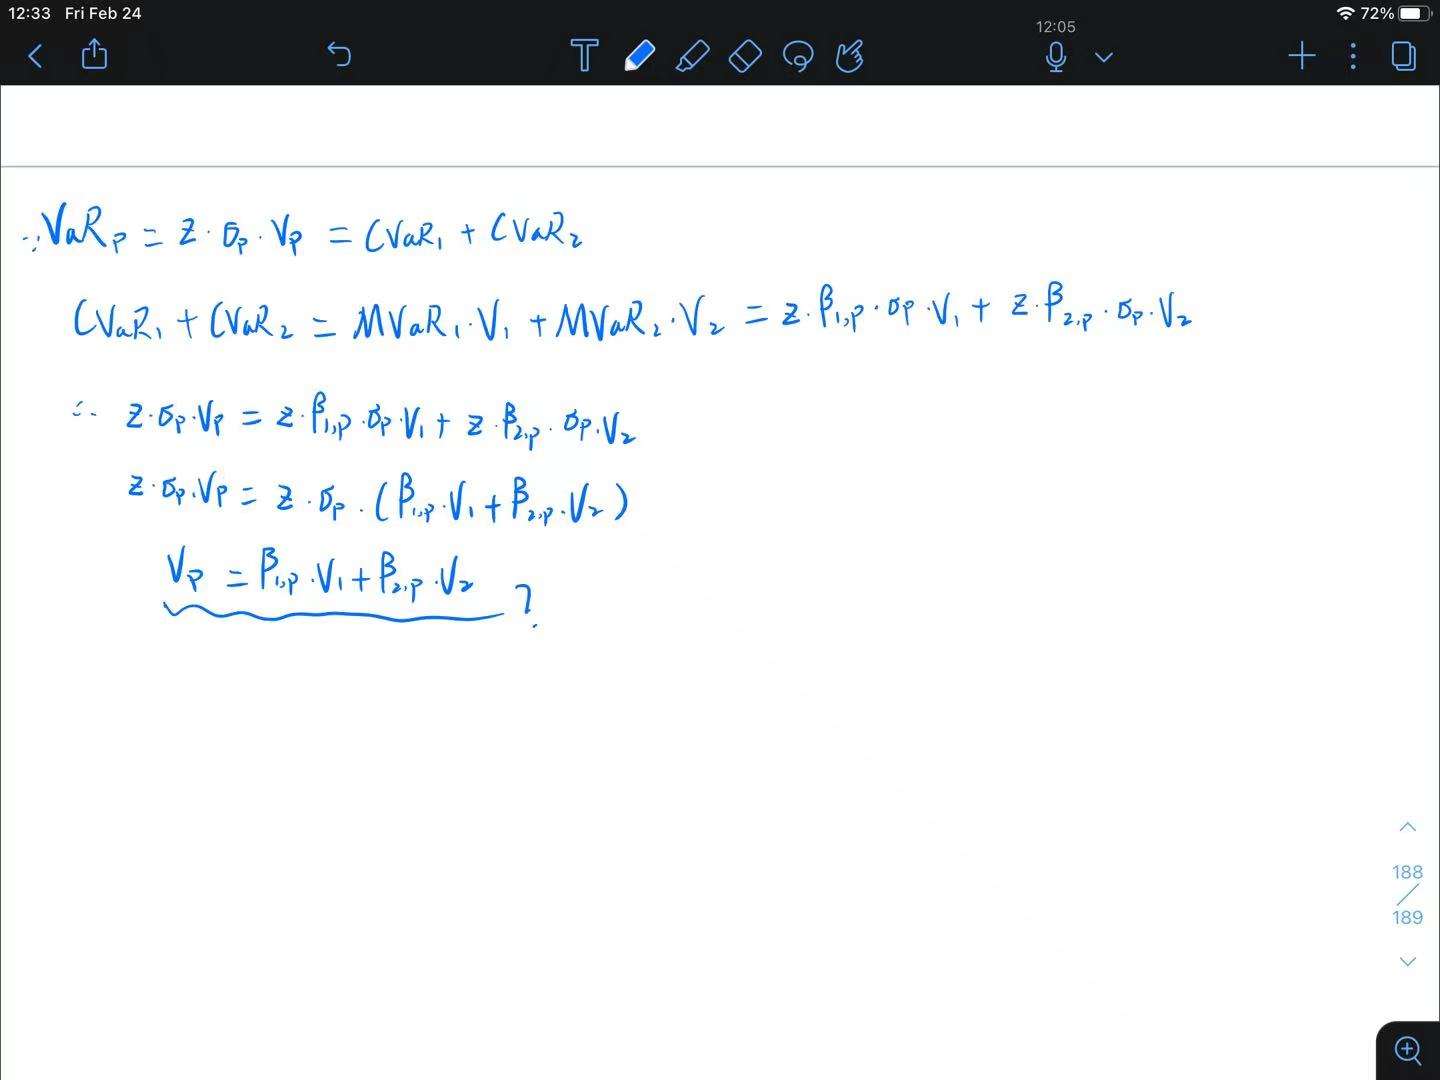 12:33 Fri Feb 24
72%
T
12:05
∵ VaRₚ = Z · σₚ · Vₚ = CVaR₁ + CVaR₂
CVaR₁ + CVaR₂ = MVaR₁ · V₁ + MVaR₂ · V₂ = Z · β₁,ₚ · σₚ · V₁ + Z · β₂,ₚ · σₚ · V₂
∴ Z · σₚ · Vₚ = Z · β₁,ₚ · σₚ · V₁ + Z · β₂,ₚ · σₚ · V₂
Z · σₚ · Vₚ = Z · σₚ · (β₁,ₚ · V₁ + β₂,ₚ · V₂)
Vₚ = β₁,ₚ · V₁ + β₂,ₚ · V₂ ?
188
/
189